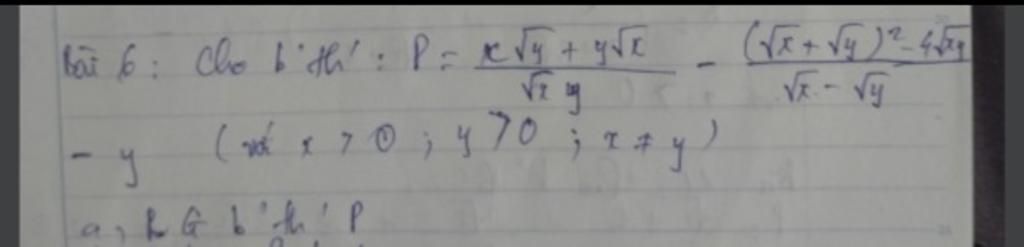 Bài 6 : Cho b' th' : P = (x√y + y√x)/(√xy) - ((√x + √y)² - 4√xy)/(√x - √y)
- y (với x > 0 ; y > 0 ; x ≠ y)
a, RG b' th' P